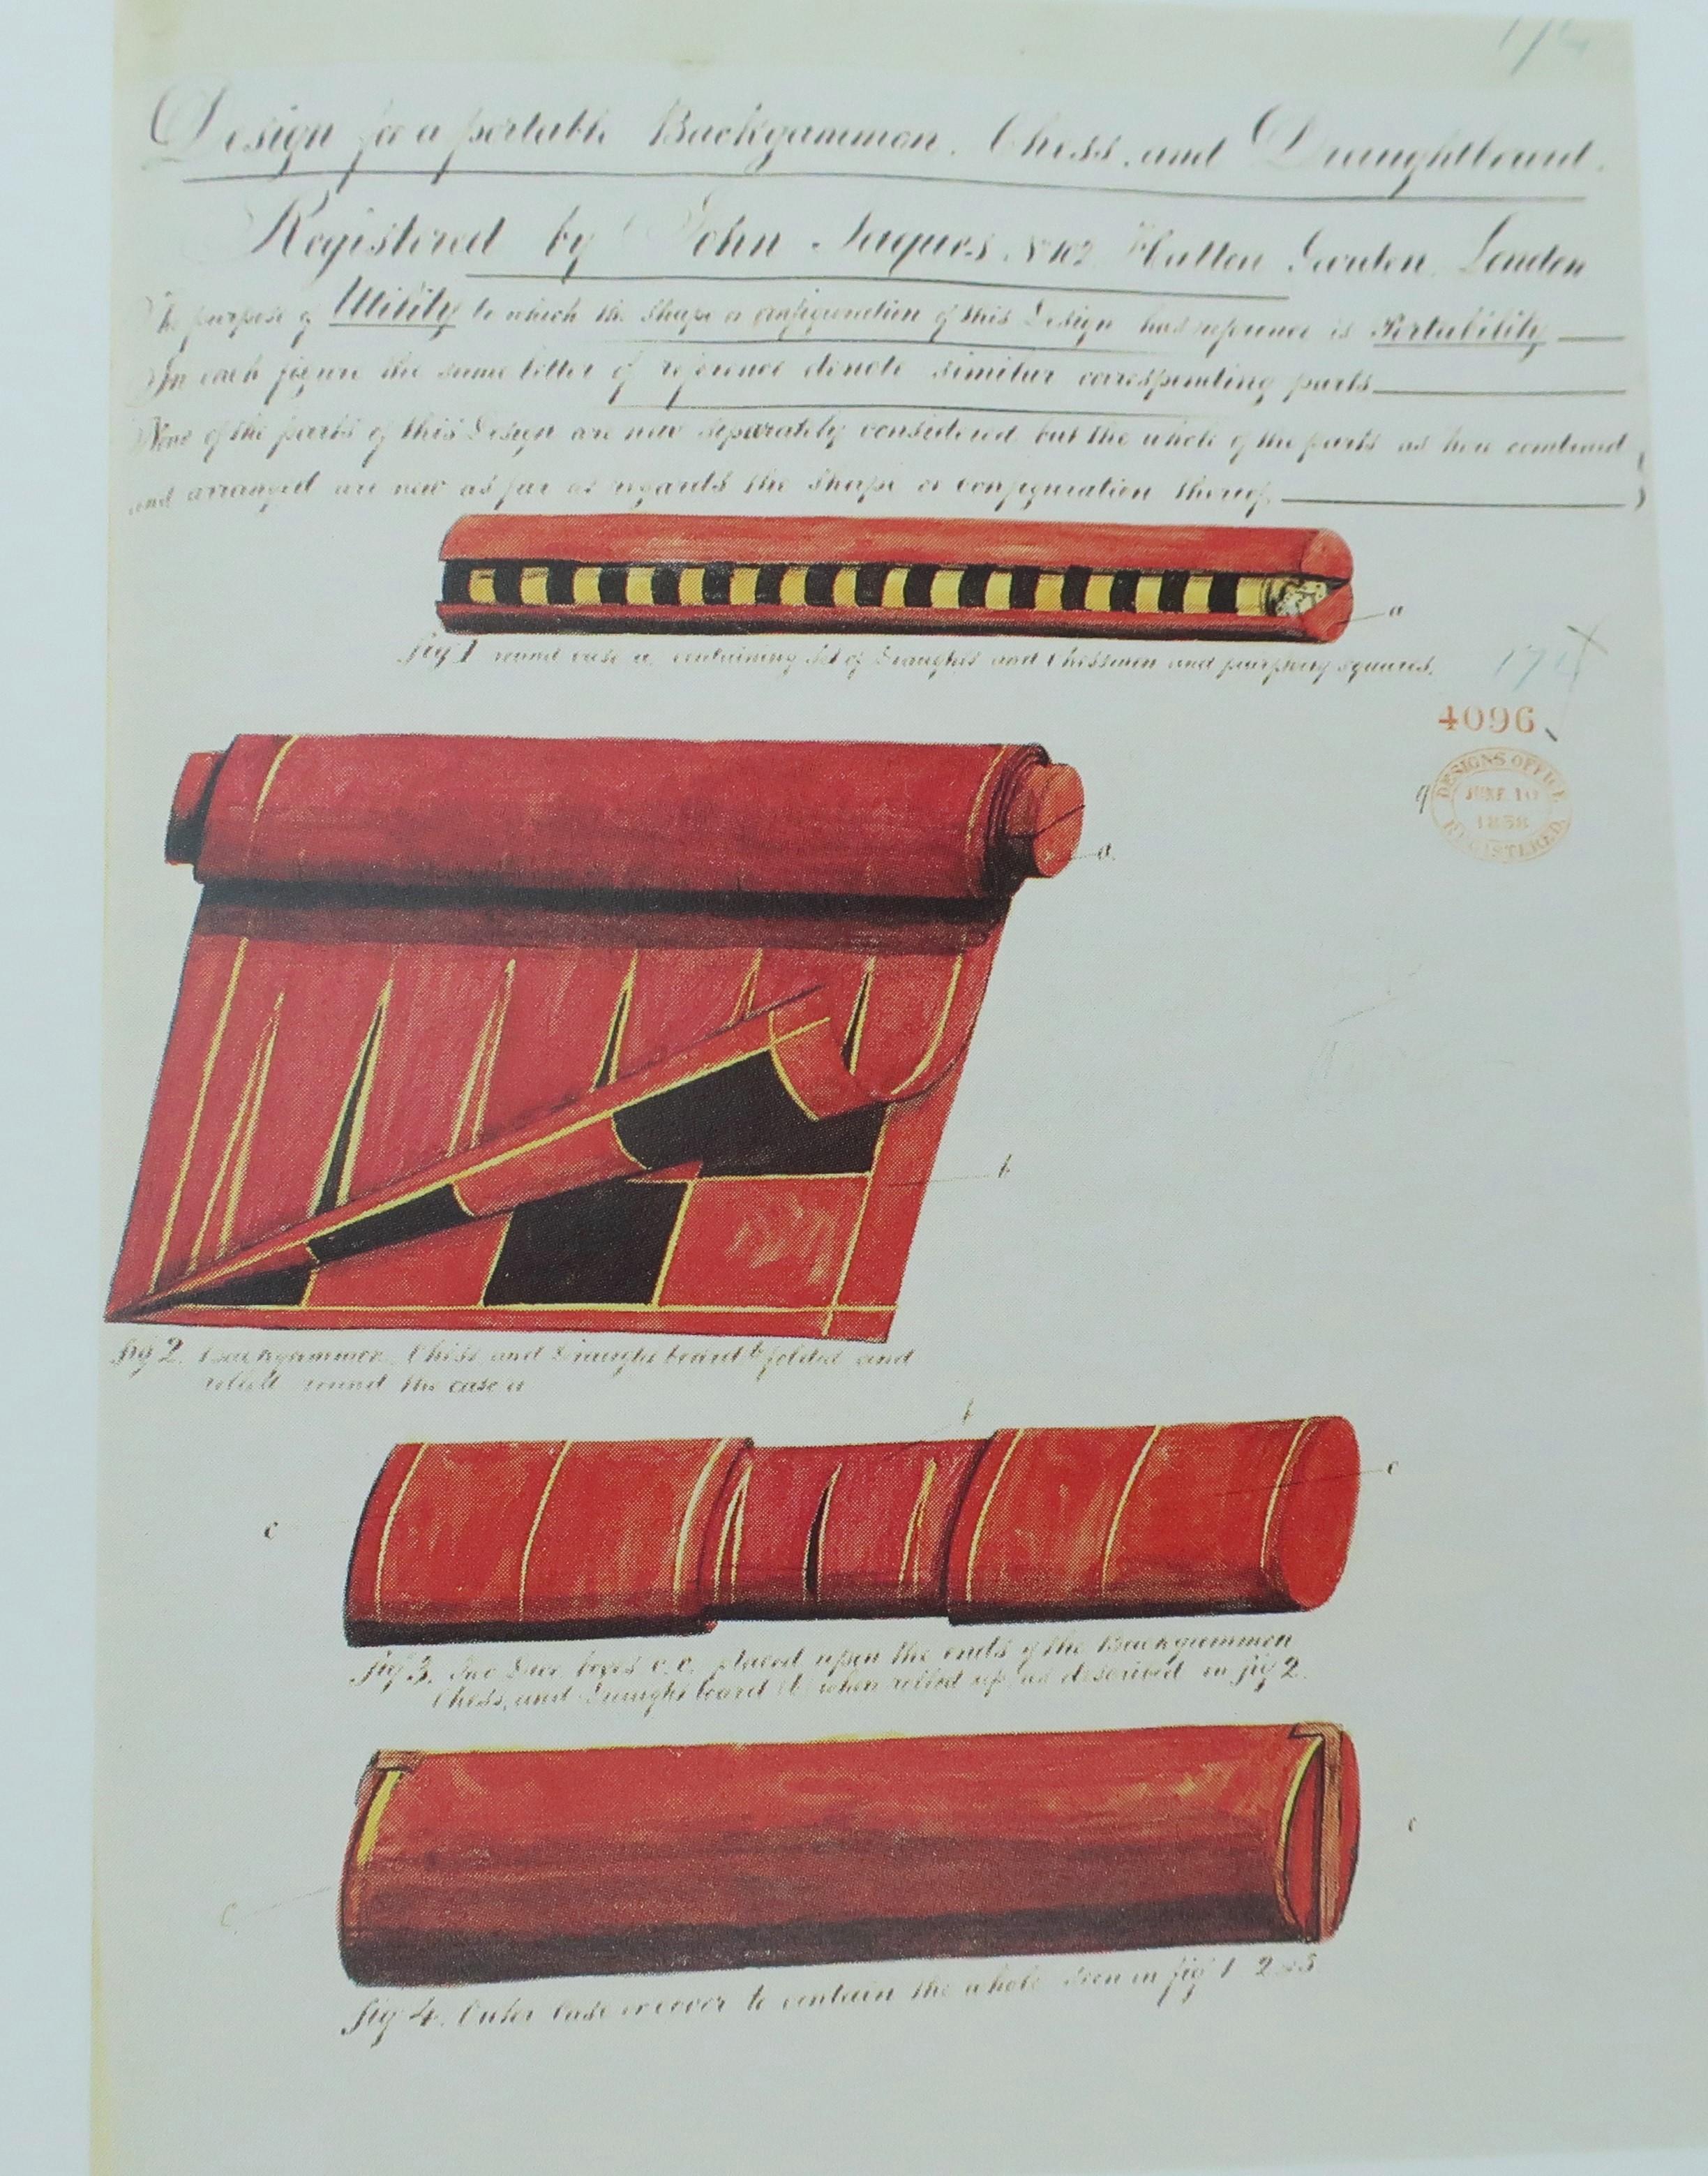 174
Design for a portable Backgammon, Chess, and Draughtboard.
Registered by John Jaques No 102 Hatton Garden, London
The purpose of Utility to which the shape or configuration of this Design has reference is Portability
In each figure the same letter of reference denote similar corresponding parts
None of the parts of this Design are new separately considered but the whole of the parts as here combined
and arranged are new as far as regards the shape or configuration thereof.
a
fig 1 round case a. containing set of Draughts and Chessmen and squares.
174
4096
DESIGNS OFFICE
JUNE 10
1858
REGISTERED
a
b
fig 2. Backgammon, Chess and Draught board b folded and
rolled round the case a
b
c
c
fig 3. Two Dice boxes c.c. placed upon the ends of the Backgammon
Chess, and Draught board b when rolled up as described in fig 2.
c
c
fig 4. Outer Case or cover to contain the whole seen in fig 1 2 & 3